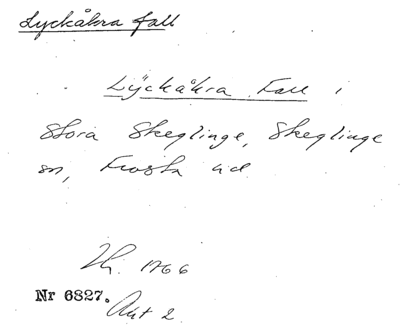 Lyckåkra fall
Lÿckåkra Fall i
Stora Skeglinge, Skeglinge
sn, Frosta hd
Lh. 1766
Nr 6827. Akt 2